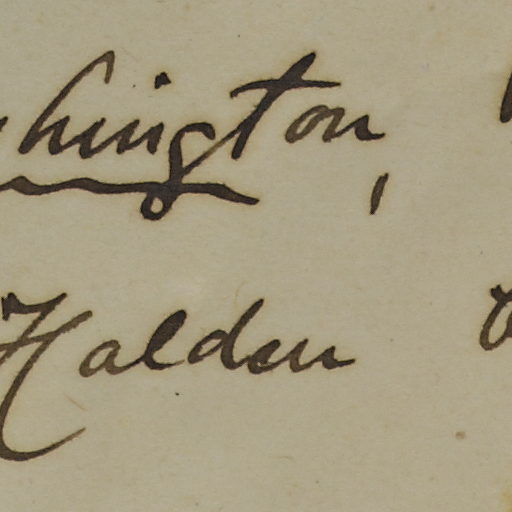 shington,
Halden